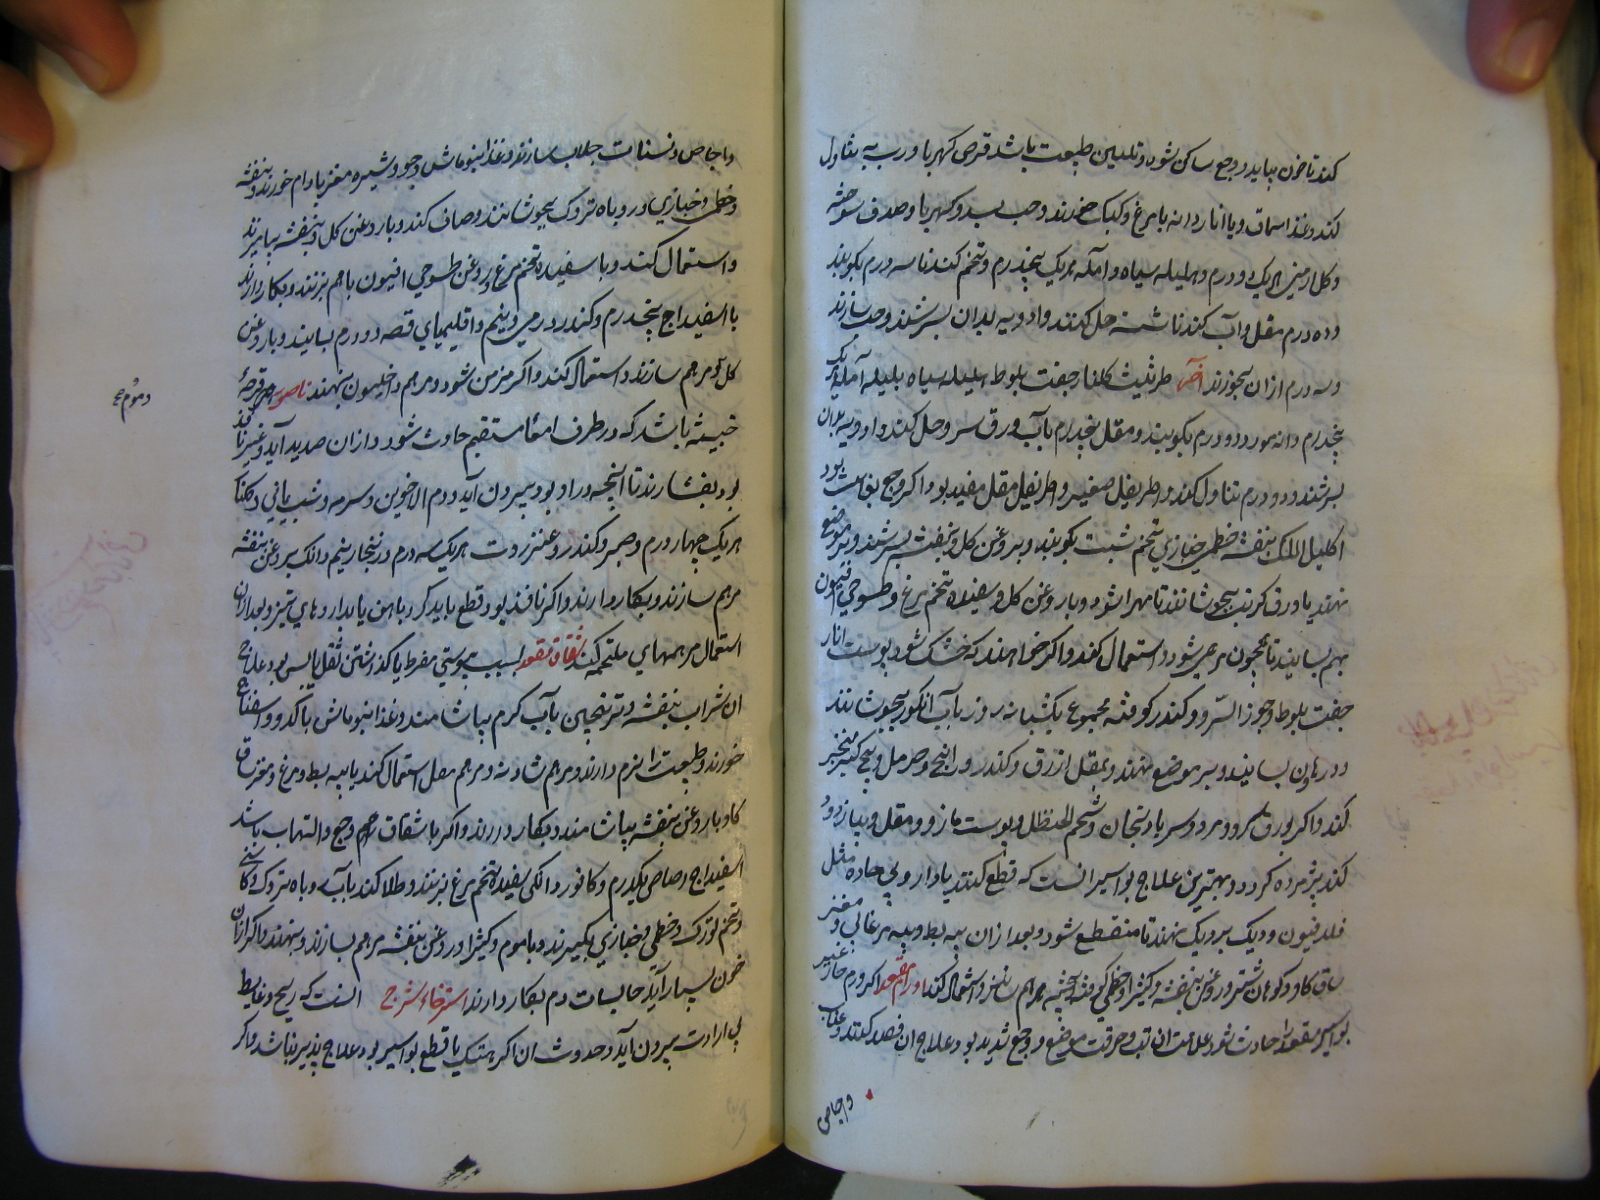 کند تا خون بیاید و وجع ساکن شود و تلیین طبیعت باشد قرص کهربا و رب به بتناول
کند و غذا سماق و یا انار دانه با مرغ و کبک خورند و حب بسد و کهربا و صدف سوخته
و کل ارمنی هر یک دو درم و هلیله سیاه و آمله هر یک پنجدرم و تخم کندنا سه درم بکوبند
و ده درم مقل و آب کندنا شسته حل کنند و ادویه بدان بسرشند و حب سازند
و سه درم ازان بخورند آخر طرثیث کلنار جفت بلوط هلیله سیاه بلیله آمله هر یک
پنجدرم دانه مورد دو درم بکوبند و مقل پنجدرم بآب ورق سرو حل کنند و ادویه بدان
بسرشند و دو درم تناول کنند و اطریفل صغیر و اطریفل مقل مفید بود و اکر وجع بغایت بود
اکلیل الملک بنفشه خطمی خبازی تخم شبت بکوبند و بروغن کل و بنفشه بسرشند و بر موضع
نهند یا ورق کرنب بجوشانند تا مهرا شود و با روغن کل و سفیده تخم مرغ و طسوجی افیون
بهم بسایند تا همچون مرهم شود و استعمال کنند و اکر خواهند که خشک شود پوست انار
جفت بلوط و جوز السرو و کندر کوفته مجموع یکشبانه روز بآب انکور بجوشانند
و در هاون بسایند و بر موضع نهند و بمقل ازرق و کندر و راتینج و حرمل و بیخ کبر تبخیر
کند و اکر بورق سرو و مرد و سر بادنجان و شحم الحنظل و پوست مازو و مقل و پیاز دود
کند پژمرده کردد و بهترین علاج بواسیر انست که قطع کنند یا داروی حاده مثل
فلدفیون و دیک بر دیک نهند تا منقطع شود و بعد ازان پیه بط و پیه مرغابی و مغز
ساق کاو و کوهان شتر و روغن بنفشه و کثیرا و خطمی کوفته و بیخته مرهم سازند و استعمال کنند اورام مقعد اکر ورم حار غیر
بواسیر مقعد را حادث شود علامت ان تب و حرقت موضع و وجع شدید بود علاج ان فصد کنند و عناب
و اجاص
و اجاص و نستات جلاب سازند و غذا بنوماش و جو و شیره مغز بادام خورند و بنفشه
و خطمی و خبازی و روباه تروک بجوشانند و صاف کنند و با روغن کل و بنفشه بیامیزند
و استعمال کنند و با سفیده تخم مرغ و روغن طسوجی افیون با هم بزنند و بکار دارند
با اسفیداج پنجدرم و کندر درمی و نیم و اقلیمیای فضه دو درم بسایند و با روغن
کل و مرهم سازند و استعمال کنند و اکر مزمن شود و مرهم داخلیون بنهند ناصور قرحه
خبیثه باشد که در طرف امعا مستقیم حادث شود و ازان صدید آید و غیر نافذ
بود بفشارند تا آنچه در او بود بیرون آید و دم الاخوین و سرمه و شب یمانی و کلنار
هر یک چهار درم و صبر و کندر و عنزروت هر یک سه درم و زنجار نیم دانک بروغن بنفشه
مرهم سازند و بکار دارند و اکر نافذ بود قطع باید کرد باهن یا بداروهای تیز و بعد ازان
استعمال مرهمهای ملتحمه کنند شقاق مقعد بسبب یبوستی مفرط یا کذاشتن ثقل یابس بود علاج
ان شراب بنفشه و ترنجبین بآب کرم بیاشامند و غذا بنوماش با کدو و اسفناخ
خورند و طبیعت را نرم دارند و مرهم شادنه و مرهم مقل استعمال کنند یا پیه بط و مرغ و مغز ساق
کاو با روغن بنفشه بیاشامند و بکار دارند و اکر با شقاق ورم و وجع و التهاب باشد
اسفیداج رصاص یکدرم و کافور دانکی سفیده تخم مرغ بزنند و طلا کنند بآب روباه تروک و کاسنی
و تخم تورک و خطمی و خبازی بکیرند و با موم و کثیرا و روغن بنفشه مرهم سازند و بنهند و اکر ازان
خون بسیار آید حابسات دم بکار دارند استرخاء شرج انست که ریح و غایط
بی ارادت بیرون آید و حدوث ان اکر بهتک یا قطع بواسیر بود علاج پذیر نباشد و اکر